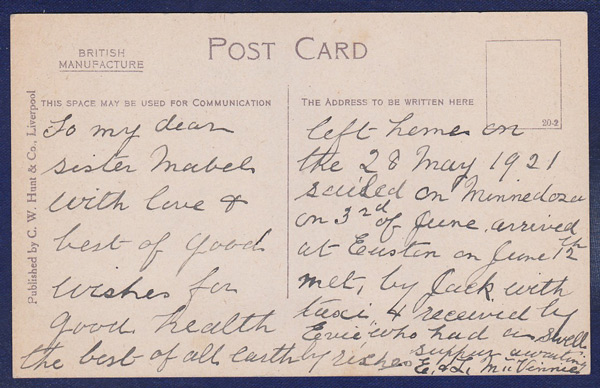 BRITISH
MANUFACTURE
POST CARD
20-2
THIS SPACE MAY BE USED FOR COMMUNICATION
THE ADDRESS TO BE WRITTEN HERE
Published by C. W. Hunt & Co., Liverpool
To my dear
sister Mabel
with love &
best of good
wishes for
good health
the best of all earthly riches
left home on
the 28 May 1921
sailed on Minnedoza
on 3rd of June arrived
at Euston on June 12th
met by Jack with
taxi & received by
Evie who had a swell
supper awaiting
E. & L.